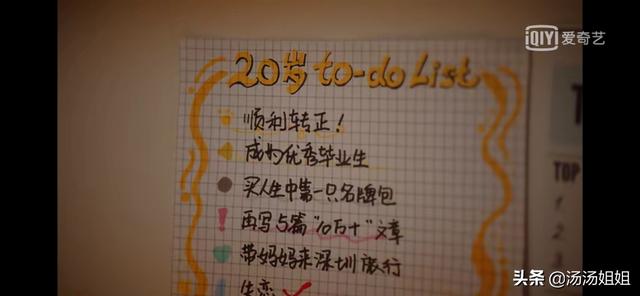 iQIYI 爱奇艺
20岁 to-do List
顺利转正！
成为优秀毕业生
买人生中第一只名牌包
再写5篇"10万+"文章
带妈妈来深圳旅行
失恋
T
TOP
1
2
3
头条 @汤汤姐姐